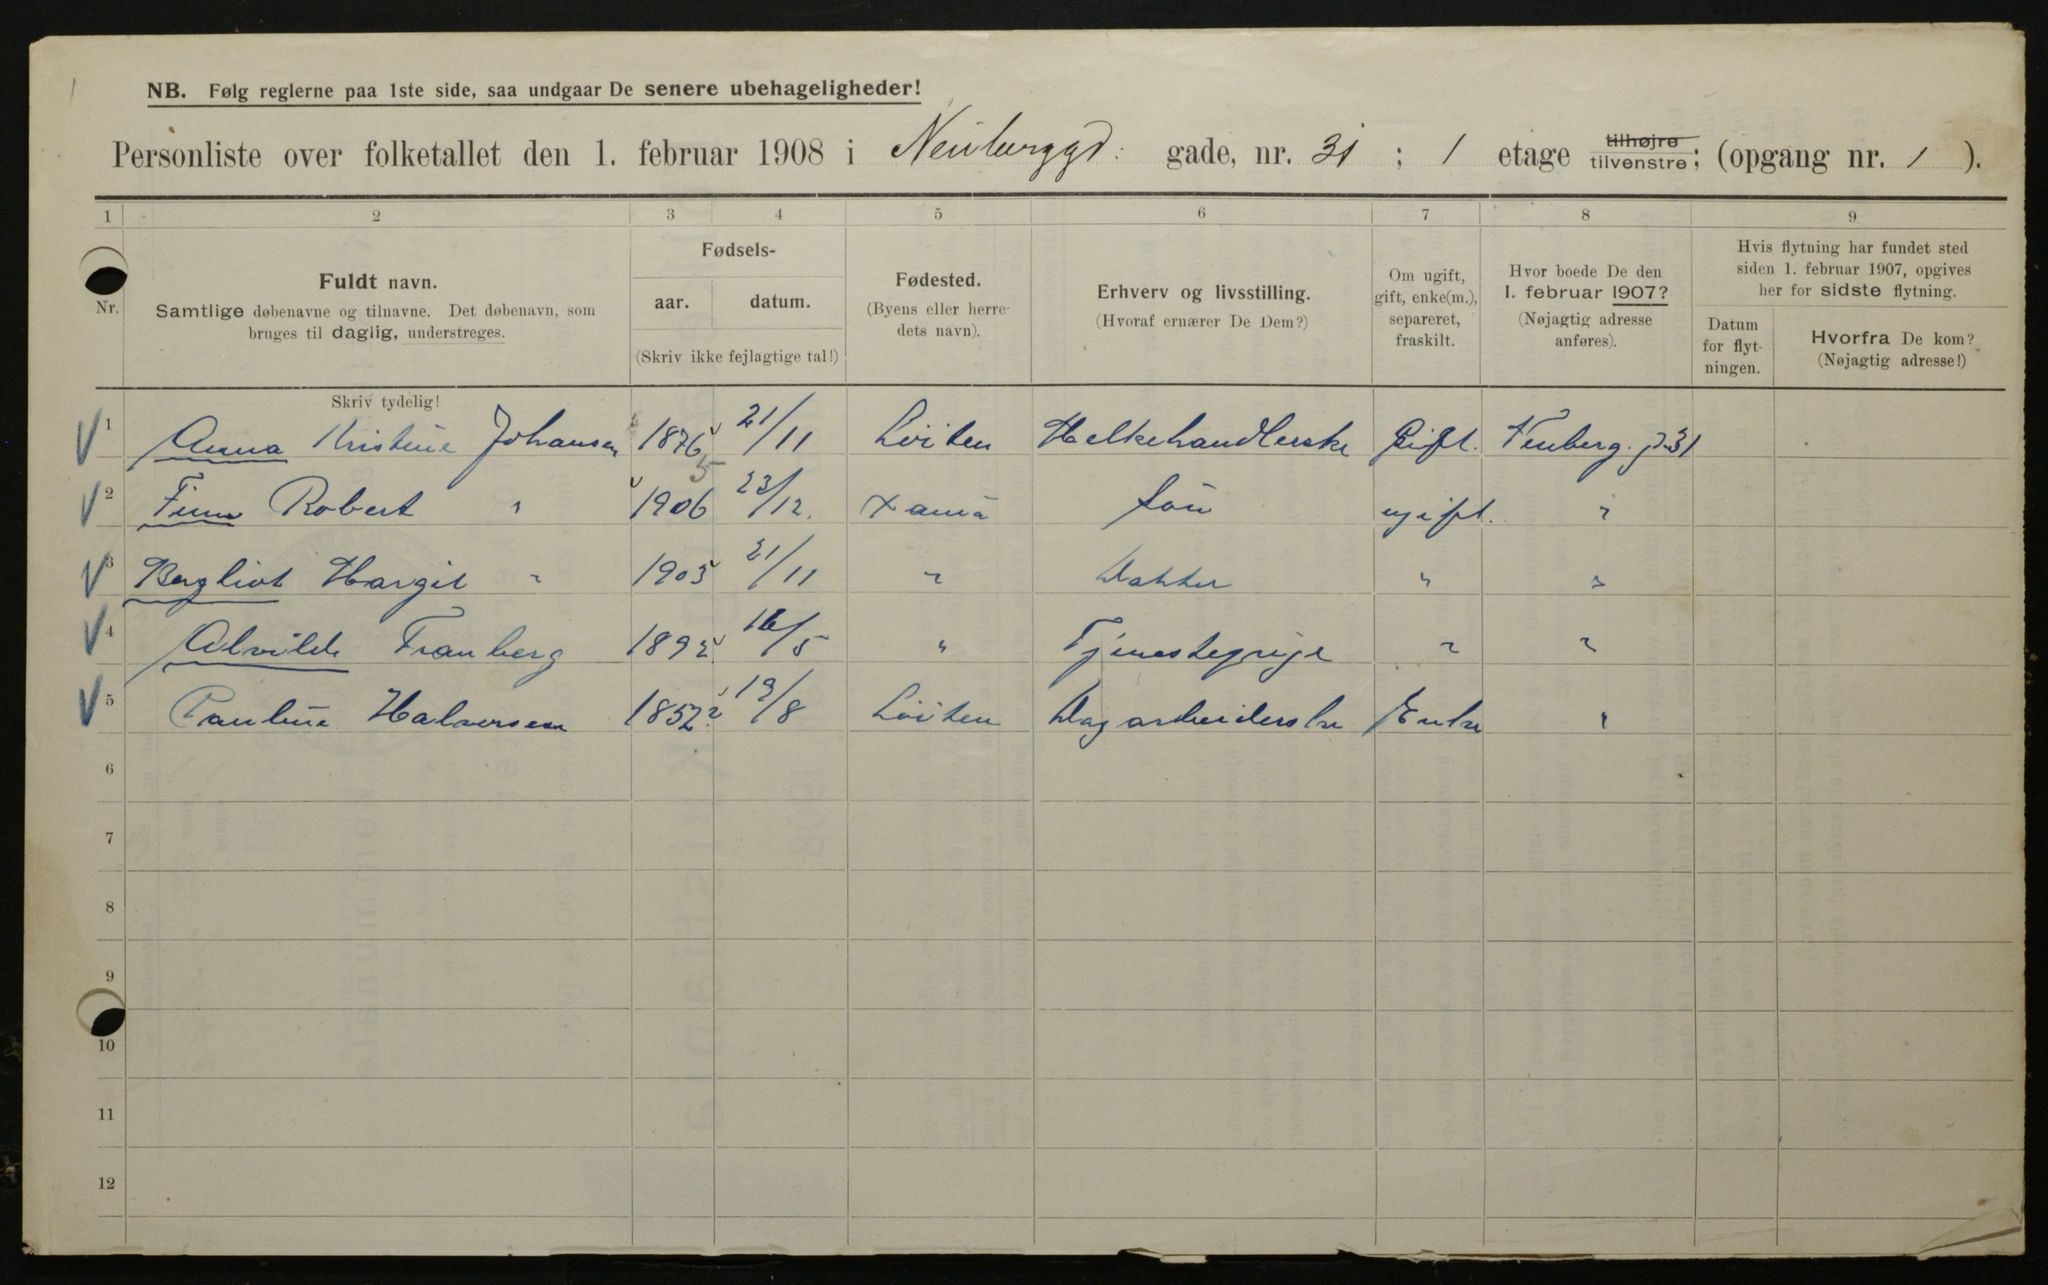 NB. Følg reglerne paa 1ste side, saa undgaar De senere ubehageligheder!
Personliste over folketallet den 1. februar 1908 i Neuberggd: gade, nr. 31 ; 1 etage tilhøjre tilvenstre; (opgang nr. 1 ).
1 2 3 4 5 6 7 8 9
Nr.
Fuldt navn.
Samtlige døbenavne og tilnavne. Det døbenavn, som
bruges til daglig, understreges.
Fødsels-
aar. datum.
(Skriv ikke fejlagtige tal!)
Fødested.
(Byens eller herre-
dets navn).
Erhverv og livsstilling.
(Hvoraf ernærer De Dem?)
Om ugift,
gift, enke(m.),
separeret,
fraskilt.
Hvor boede De den
1. februar 1907?
(Nøjagtig adresse
anføres).
Hvis flytning har fundet sted
siden 1. februar 1907, opgives
her for sidste flytning.
Datum
for flyt-
ningen.
Hvorfra De kom?
(Nøjagtig adresse!)
Skriv tydelig!
1 Anna Kristine Johansen 1876 21/11 Löiten Melkehandlerske Gift. Neuberg. g 31
5
2 Finn Robert " 1906 23/12. X ania Sön ugift. "
3 Bergliot Margit " 1903 21/11 " Datter " "
4 Alvilde Tranberg 1892 16/5 " Tjenestepige " "
5 Pauline Halvorsen 1852 19/8 Löiten Dagarbeiderske Enke "
6
7
8
9
10
11
12